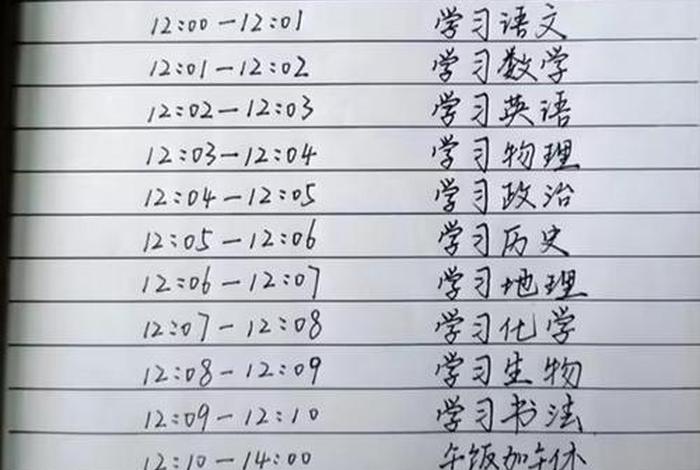 12:00—12:01 学习语文
12:01—12:02 学习数学
12:02—12:03 学习英语
12:03—12:04 学习物理
12:04—12:05 学习政治
12:05—12:06 学习历史
12:06—12:07 学习地理
12:07—12:08 学习化学
12:08—12:09 学习生物
12:09—12:10 学习书法
12:10—14:00 午饭加午休